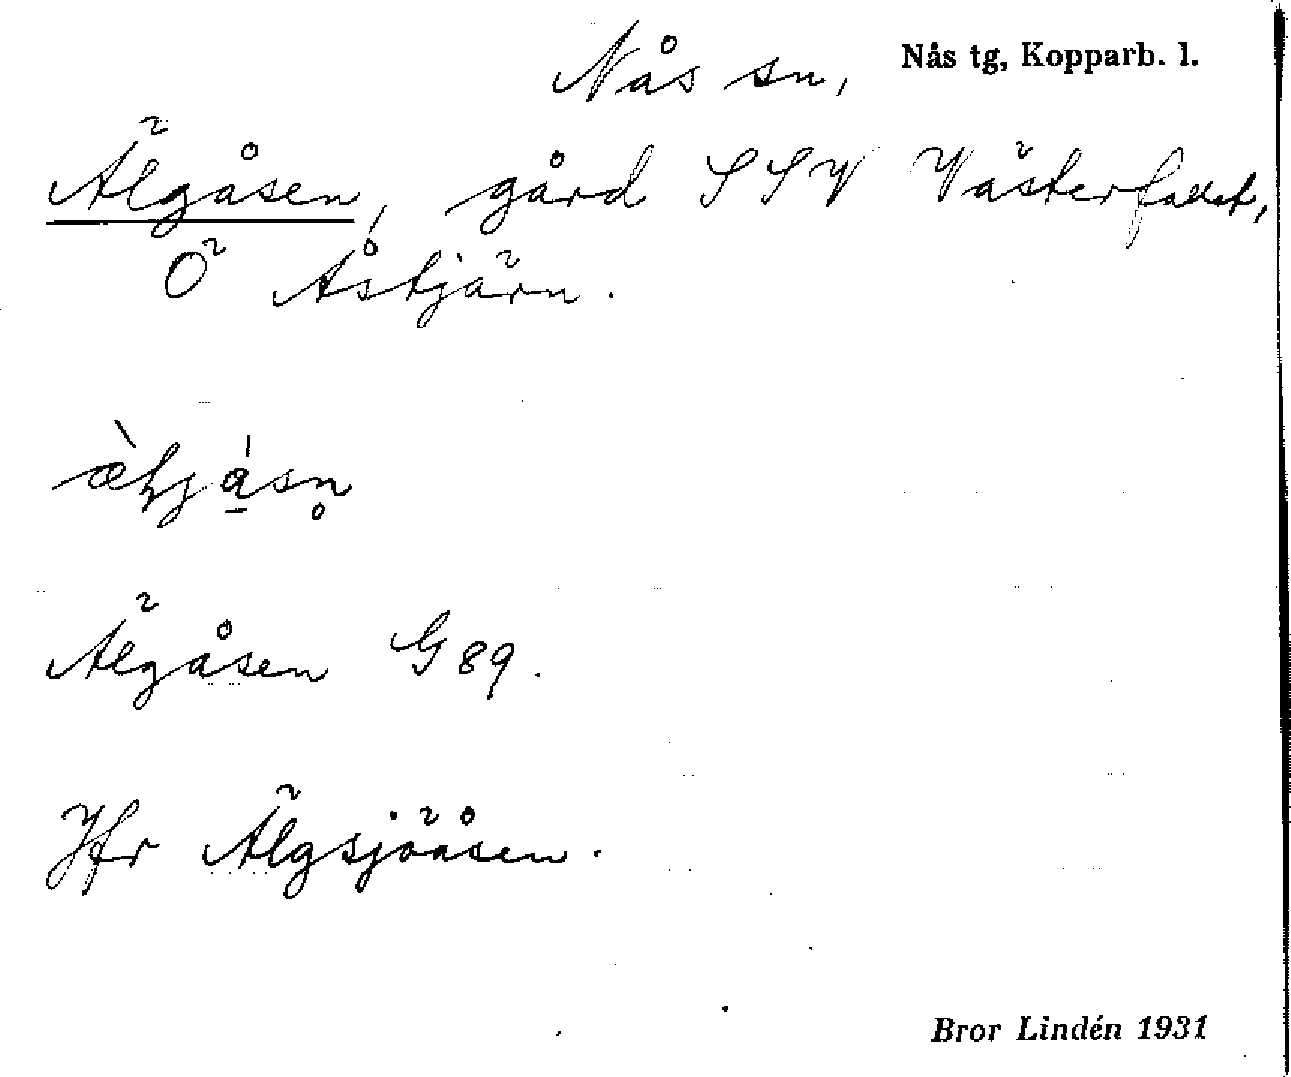 Nås sn, Nås tg, Kopparb. l.
Älgåsen, gård SSV Västerfallet,
Ö Åstjärn.
Älgåsen G 89.
Jfr Älgsjöåsen.
Bror Lindén 1931